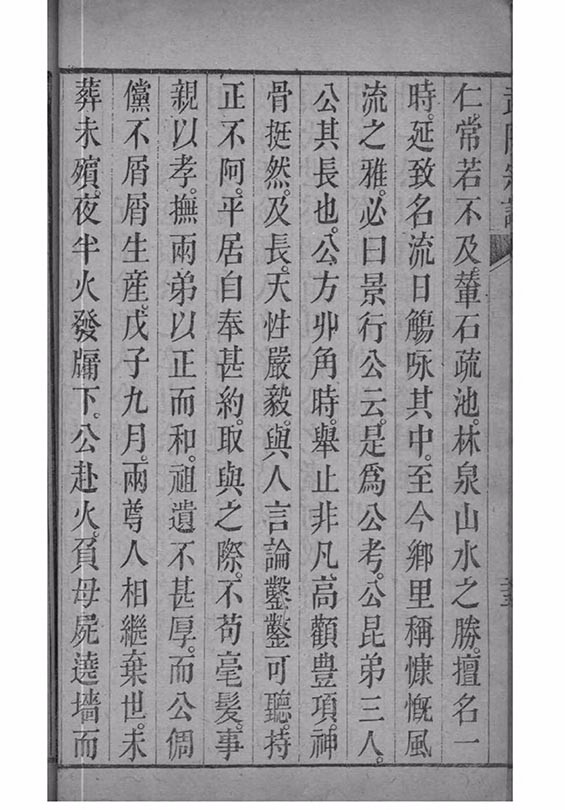 仁常若不及輦石疏池。林泉山水之勝。擅名一
時。延致名流日觴咏其中。至今鄉里稱慷慨風
流之雅。必曰景行公云。是爲公考。公昆弟三人。
公其長也。公方丱角時。舉止非凡高顴豊項。神
骨挺然。及長。天性嚴毅。與人言論鑿鑿可聽。持
正不阿。平居自奉甚約。取與之際。不苟毫髮。事
親以孝。撫兩弟以正而和。祖遺不甚厚。而公倜
儻不屑屑生産。戊子九月。兩尊人相繼棄世。未
葬未殯。夜半火發牖下。公赴火。負母屍遶墻而